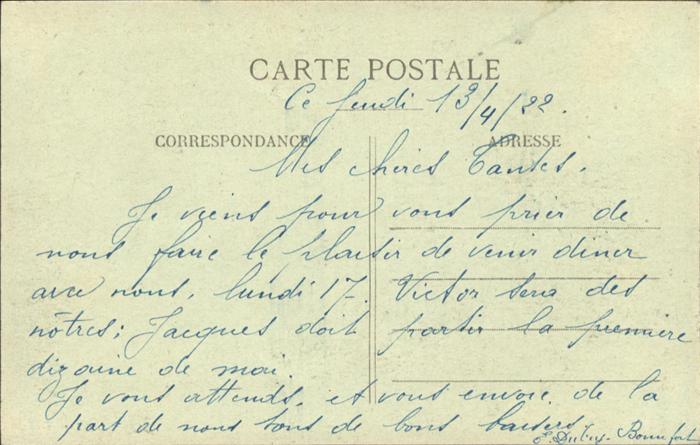 CARTE POSTALE
Ce Jeudi 13/4/22.
CORRESPONDANCE
ADRESSE
Mes chères Tantes.
Je viens pour vous prier de
nous faire le plaisir de venir diner
avec nous, lundi 17. Victor sera des
nôtres; Jacques doit partir la première
dizaine de mai.
Je vous attends, et vous envoie de la
part de nous tous de bons baisers